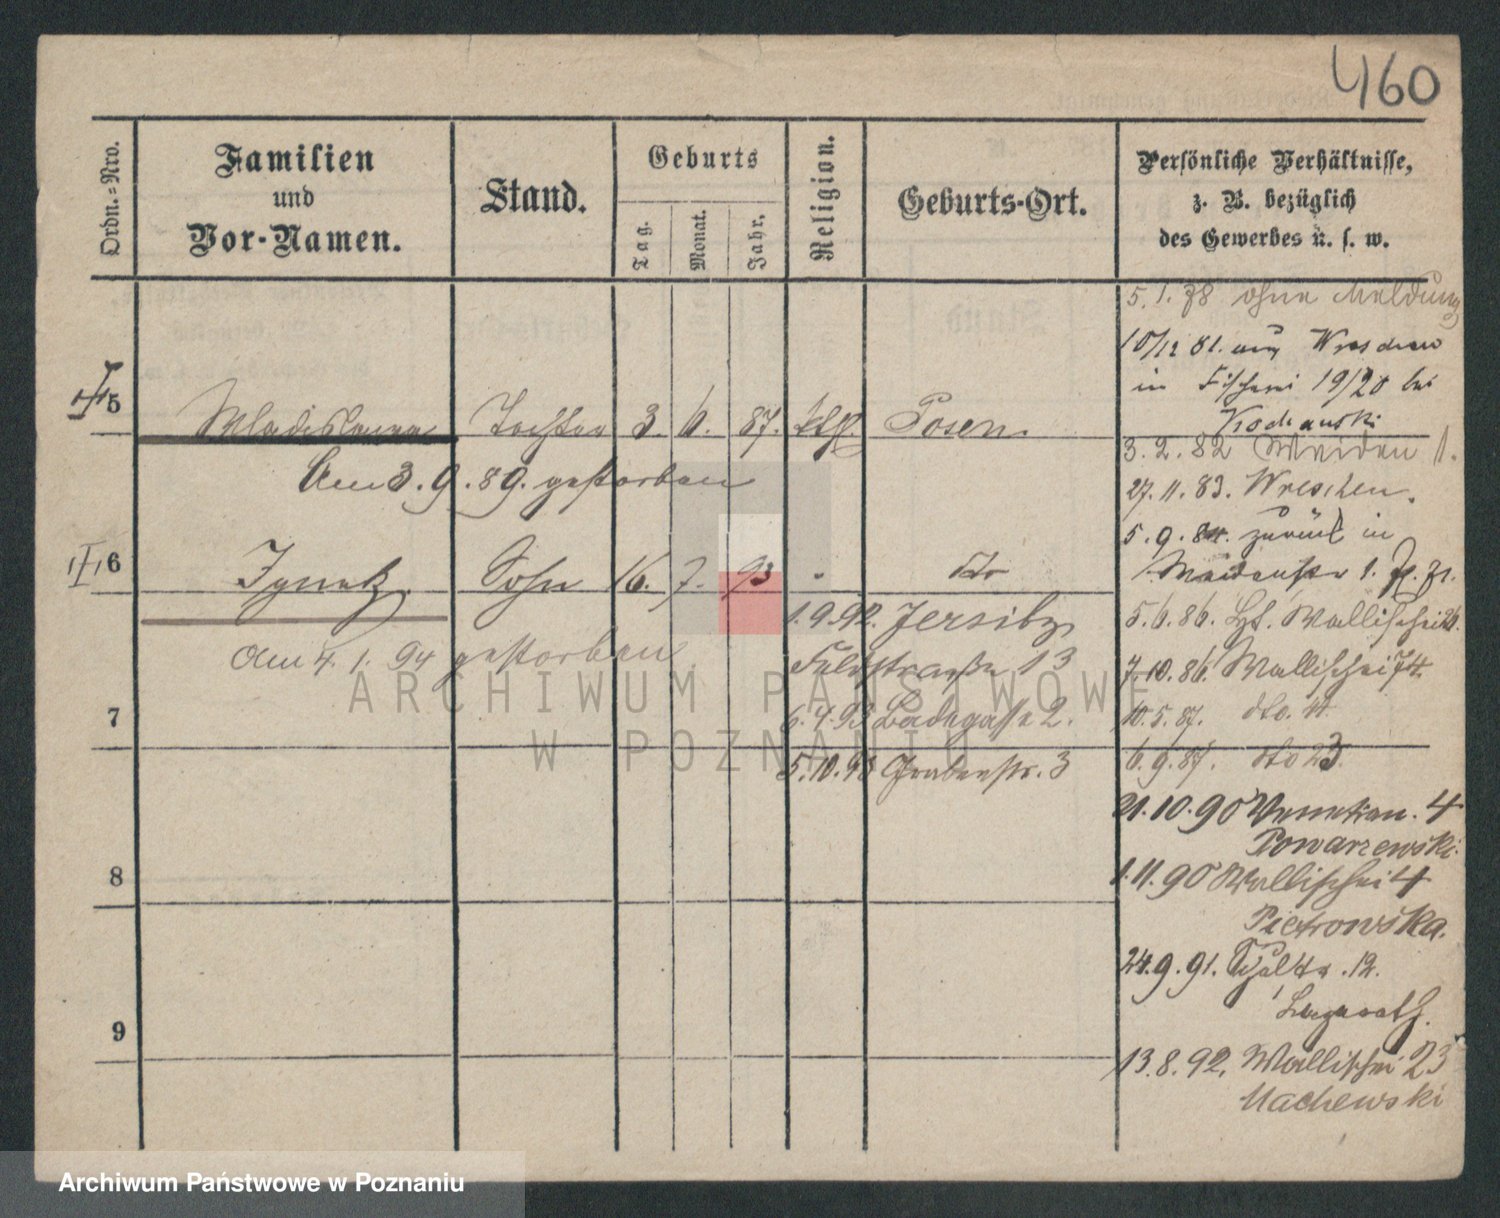 460
Ordn.=Nro.
Familien
und
Vor-Namen.
Stand.
Geburts
Tag.
Monat.
Jahr.
Religion.
Geburts-Ort.
Persönliche Verhältnisse,
z. B. bezüglich
des Gewerbes u. s. w.
5.1.78 ohne Meldung
10/12 81. aus Wreschen
in Fischerei 19/20 bei
Kochanski
5 Wladislawa Tochter 3. 6. 87. kth. Posen
3.2.82 1.
Am 3.9.89. gestorben
27.11.83. Wreschen.
5.9.84. zurück in
6 Ignatz Sohn 16. 7. 93 " do
1.
1.9.92. Jersitz
5.6.86. Wallischei
Feldstraße 13
Am 4.1.94 gestorben
7.10.86. Wallischei 74.
6.4.93 Badegasse 2.
7
10.5.87. dto. 11.
5.10.93 Grabenstr. 3
6.9.87. dto 23.
21.10.90 Venetian. 4
Powarzewski.
8
1.11.90 Wallischei 4
Pietrowska.
24.9.91. 12.
Lazarath.
9
13.8.92. Wallischei 23
Machewski
ARCHIWUM PAŃSTWOWE
W POZNANIU
Archiwum Państwowe w Poznaniu